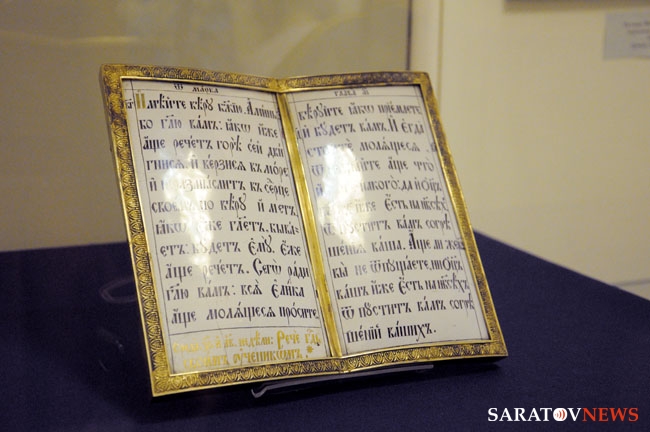 Ѿ МАРКА
Имѣйте вѣру бж҃ию. Аминь
бо гл҃ю вамъ: ꙗкѡ иже
аще речетъ горѣ сей дви
гнися и верзися въ море
и размыслитъ въ сердце
своемъ вѣру иметъ
ꙗкѡ еже гл҃етъ, быва
етъ: будетъ ему, еже
аще речетъ. Сегѡ ради
гл҃ю вамъ: вся елика
аще молящеся просите
недѣли: Рече гд҃ь
оученикѡмъ.
ГЛАВА
вѣруйте ꙗкѡ приемлете
и будетъ вамъ. И егда
стоите молящеся
аще что
кого: да и ѡц҃ъ
иже есть на нб҃сѣхъ
ѿпуститъ вамъ согрѣ
шения ваша. Аще ли же
вы не ѿпущаете, ни ѡц҃ъ
вашъ иже есть на нб҃сѣхъ
ѿпуститъ вамъ согрѣ
шений вашихъ.
SARATOVNEWS